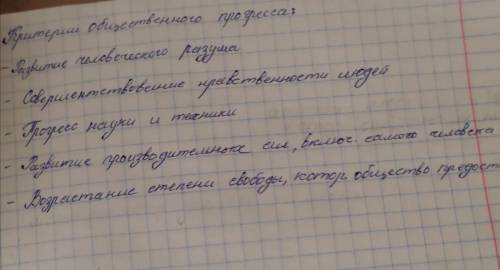 Критерии общественного прогресса:
- Развитие человеческого разума
- Совершенствование нравственности людей
- Прогресс науки и техники
- Развитие производительных сил, включ. самого человека
- Возрастание степени свободы, котор. общество предост